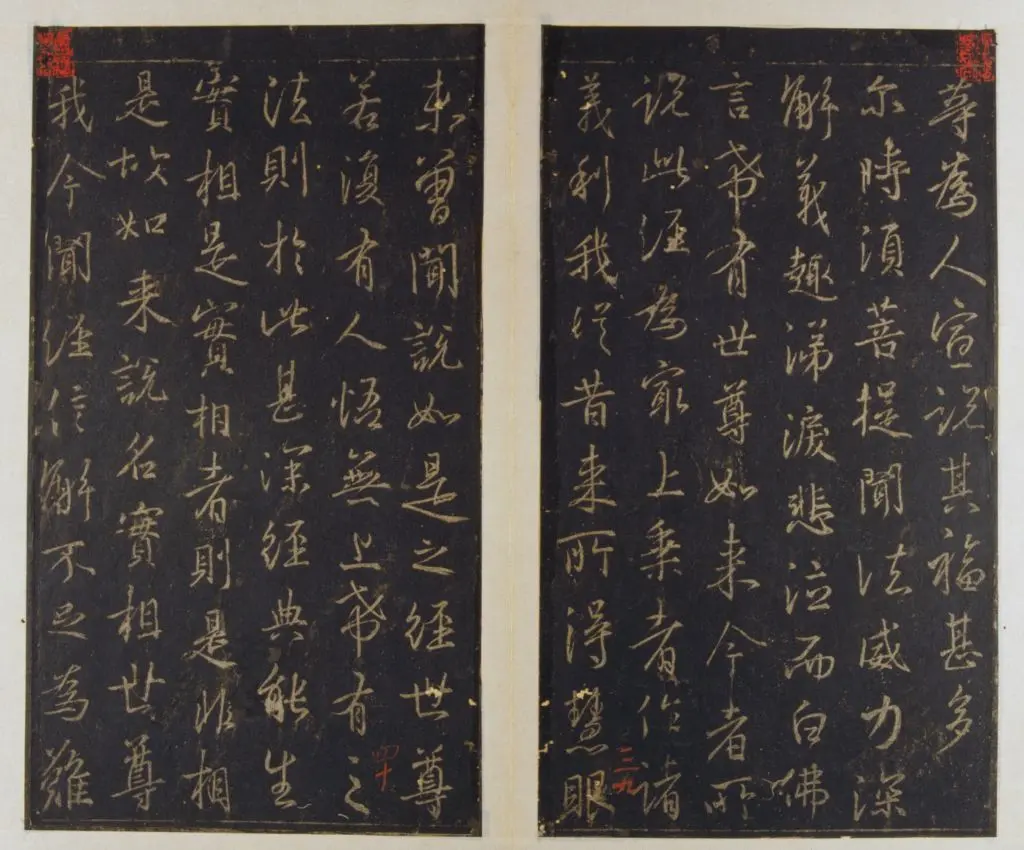 等為人宣說其福甚多
尔時須菩提聞法威力深
解義趣涕淚悲泣而白佛
言希有世尊如来今者所
說此經為冣上乘者作諸
義利我從昔来所得慧眼
未曾聞說如是之經世尊
若復有人悟無上希有之
法則於此甚深經典能生
實相是實相者則是非相
是故如来說名實相世尊
我今聞經信解不足為難
三九
四十